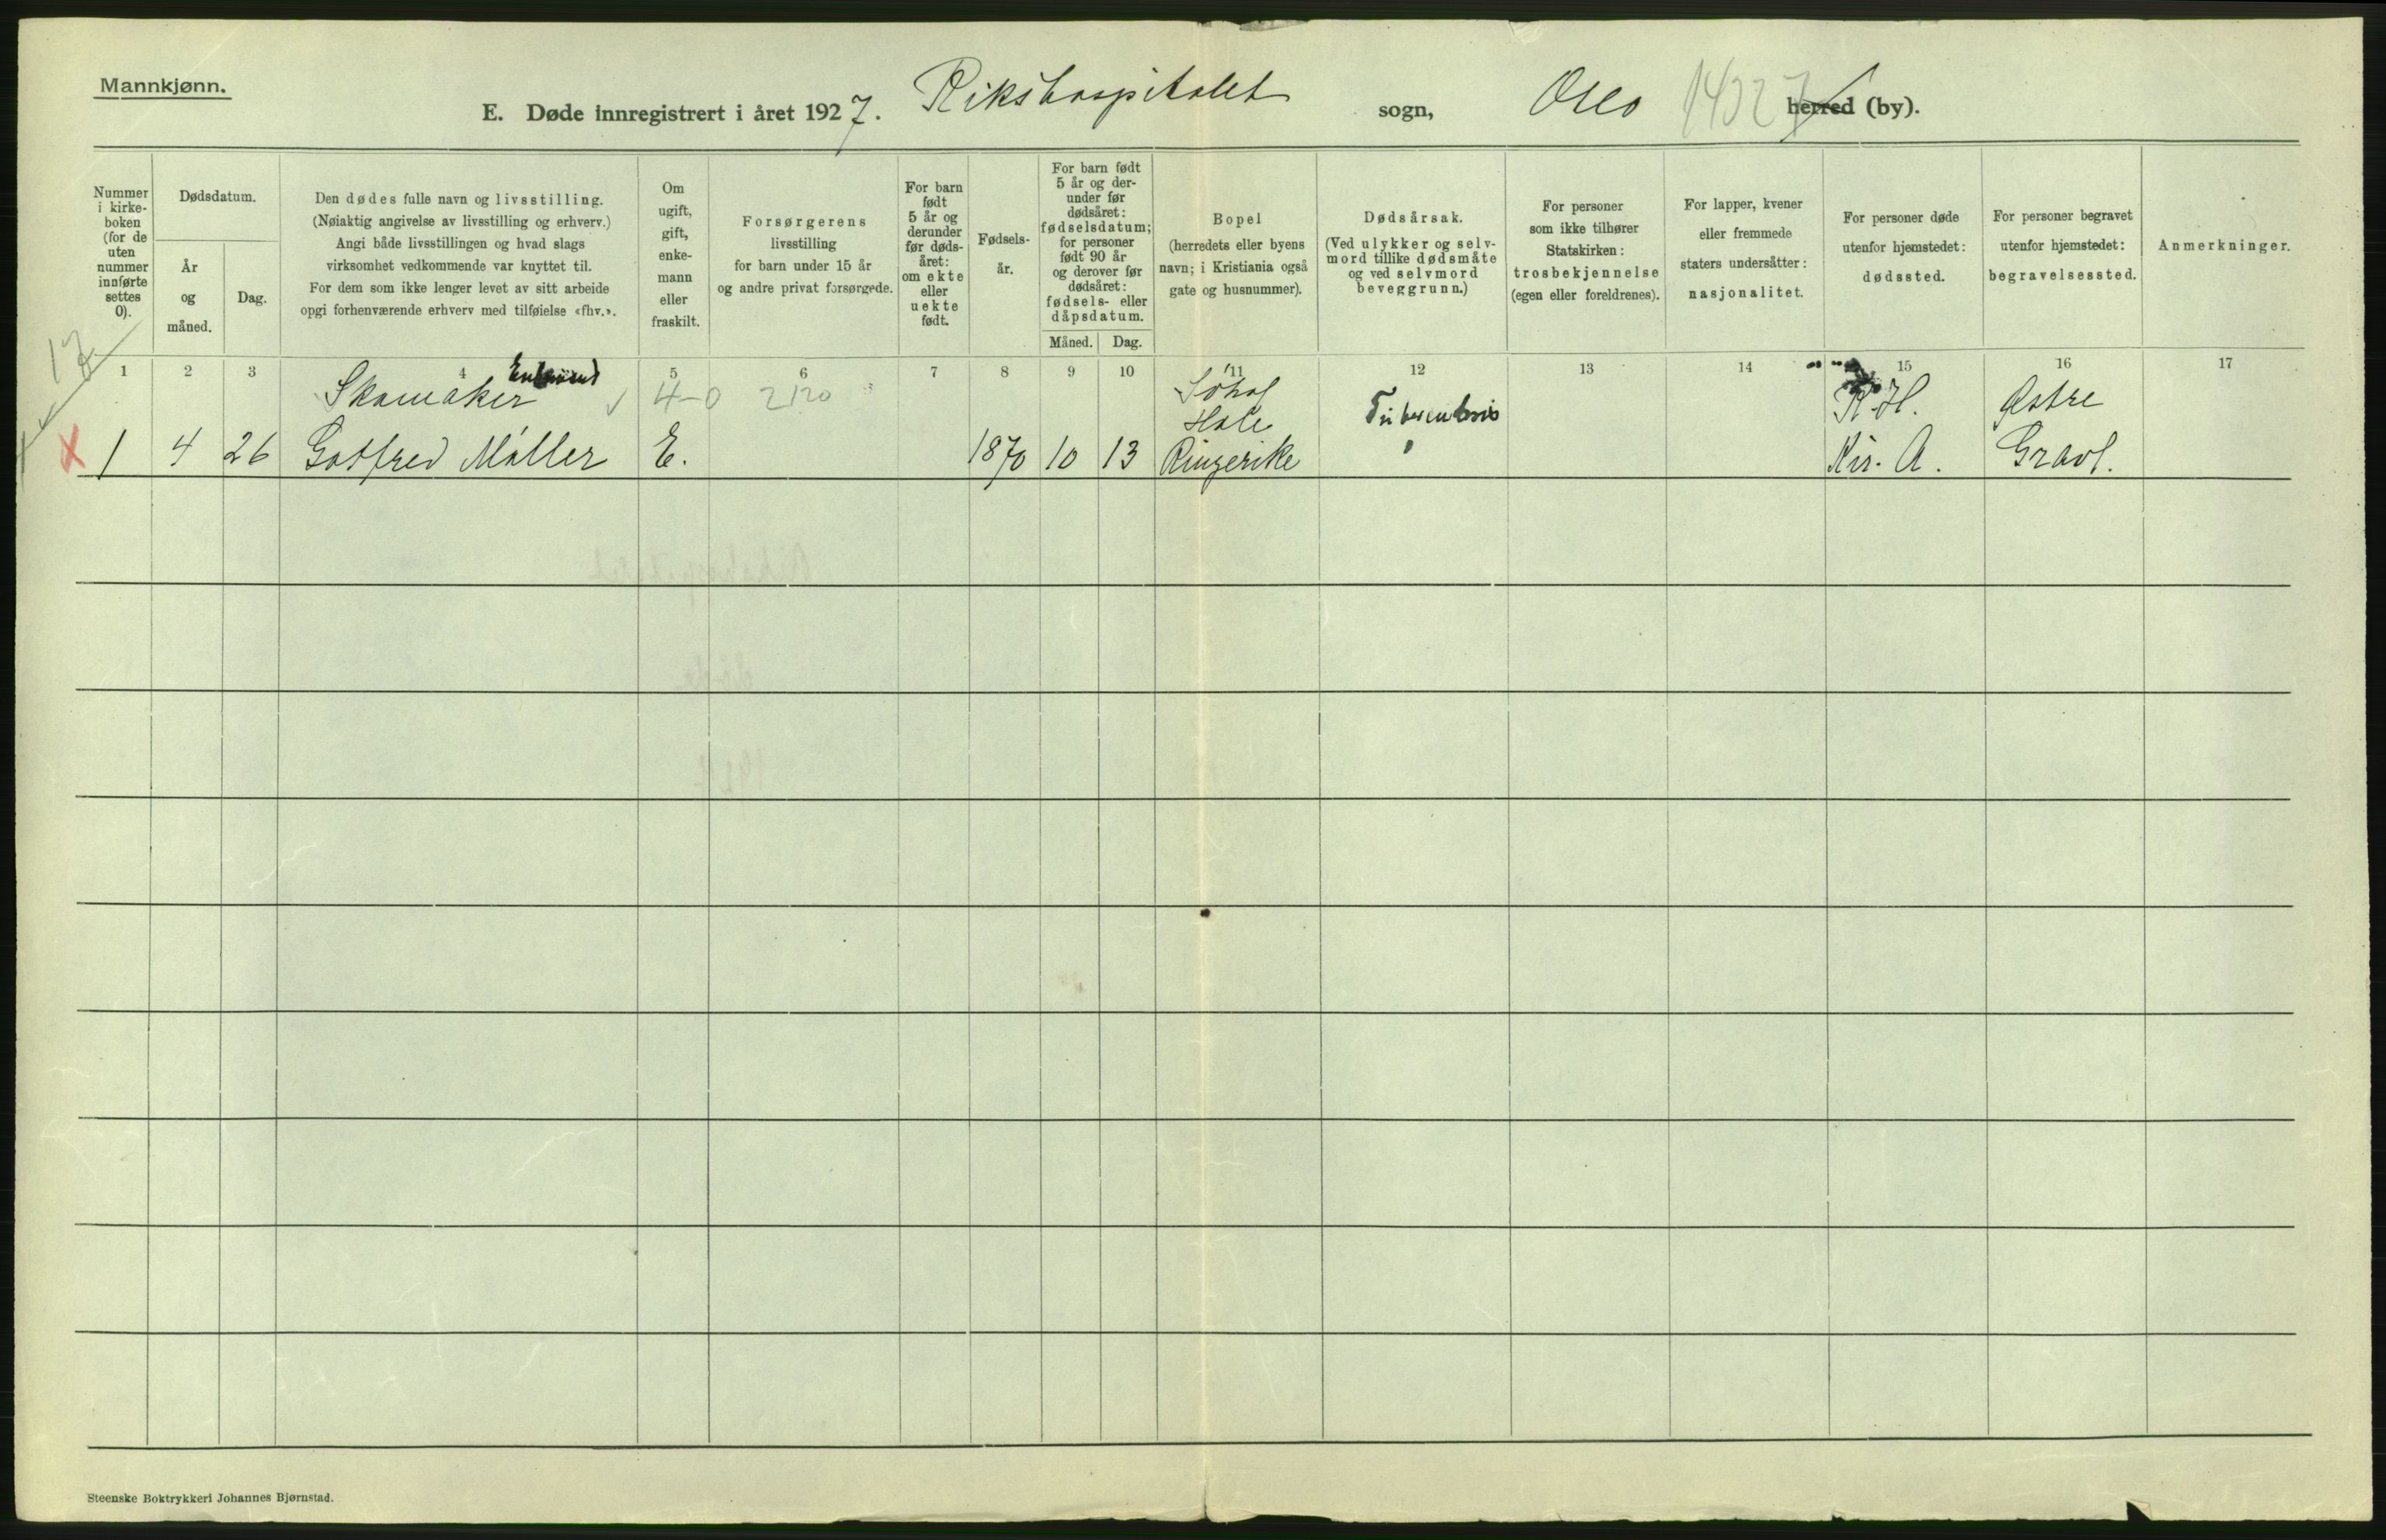 Mannkjønn.
E. Døde innregistrert i året 1927. Rikshospitalet sogn, Oslo herred (by).
Nummer i kirke-boken (for de uten nummer innførte settes 0).
Dødsdatum.
År og måned.
Dag.
Den dødes fulle navn og livsstilling.
(Nøiaktig angivelse av livsstilling og erhverv.)
Angi både livsstillingen og hvad slags
virksomhet vedkommende var knyttet til.
For dem som ikke lenger levet av sitt arbeide
opgi forhenværende erhverv med tilføielse «fhv.».
Om ugift, gift, enke-mann eller fraskilt.
Forsørgerens
livsstilling
for barn under 15 år
og andre privat forsørgede.
For barn født 5 år og derunder før døds-året: om ekte eller uekte født.
Fødsels-år.
For barn født 5 år og der-under før dødsåret: fødselsdatum; for personer født 90 år og derover før dødsåret: fødsels- eller dåpsdatum.
Måned. Dag.
Bopel
(herredets eller byens
navn; i Kristiania også
gate og husnummer).
Dødsårsak.
(Ved ulykker og selv-
mord tillike dødsmåte
og ved selvmord
beveggrunn.)
For personer
som ikke tilhører
Statskirken:
trosbekjennelse
(egen eller foreldrenes).
For lapper, kvener
eller fremmede
staters undersåtter:
nasjonalitet.
For personer døde
utenfor hjemstedet:
dødssted.
For personer begravet
utenfor hjemstedet:
begravelsessted.
Anmerkninger.
1 2 3 4 5 6 7 8 9 10 11 12 13 14 15 16 17
Skomaker 4-0 2120 Hole Tuberkulosis R.H. Østre
1 4 26 Gotfred Møller E. 1870 10 13 Ringerike Kir. A. Gravl.
Steenske Boktrykkeri Johannes Bjørnstad.